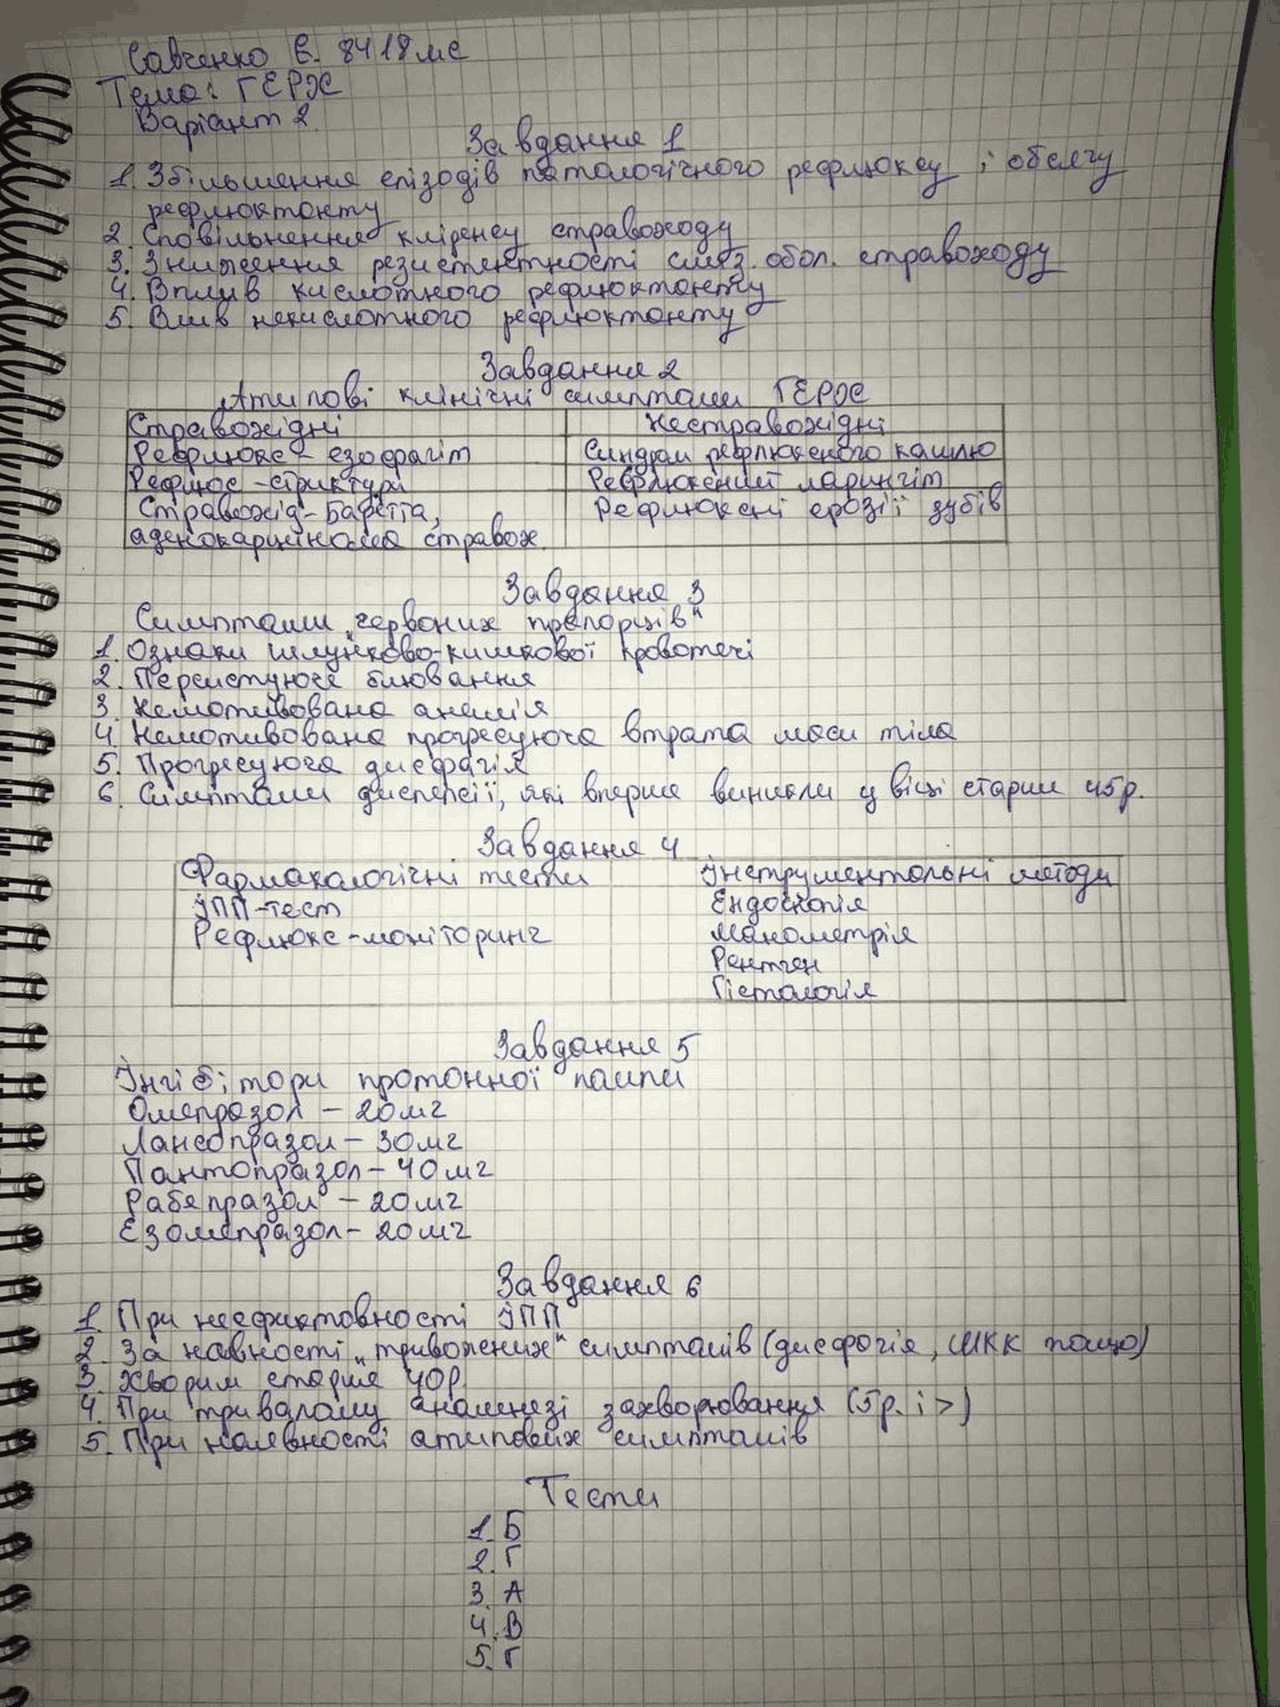 Савченко Є. 8418мс
Тема: ГЕРХ
Варіант 2.
Завдання 1
1. Збільшення епізодів патологічного рефлюксу і обсягу
рефлюктанту
2. Сповільнення кліренсу стравоходу
3. Зниження резистентності слиз. обол. стравоходу
4. Вплив кислотного рефлюктанту
5. Влив некислотного рефлюктанту
Завдання 2
Атипові клінічні симптоми ГЕРХ
Стравохідні Нестравохідні
Рефлюкс-езофагіт Синдром рефлюксного кашлю
Рефлюс-стриктури Рефлюксний ларингіт
Стравохід-Баретта, Рефлюксні ерозії зубів
аденокарцинома стравох.
Завдання 3
Симптоми „червоних прапорців"
1. Ознаки шлунково-кишкової кровотечі
2. Персистуюче блювання
3. Немотивована анемія
4. Немотивована прогресуюча втрата маси тіла
5. Прогресуюча дисфагія
6. Симптоми диспепсії, які вперше виникли у віці старше 45р.
Завдання 4
Фармакологічні тести Інструментальні методи
ІПП-тест Ендоскопія
Рефлюкс-моніторинг Манометрія
Рентген
Гістологія
Завдання 5
Інгібітори протонної помпи
Омепразол - 20мг
Лансопразол - 30мг
Пантопразол - 40мг
Рабепразол - 20мг
Езомепразол - 20мг
Завдання 6
1. При неефиктовності ІПП
2. За навності „тривожних" симптомів (дисфагія, ШКК тощо)
3. Хворим старше 40р.
4. При тривалому анамнезі захворювання (5р. і >)
5. При наявності атипових симптомів
Тести
1. Б
2. Г
3. А
4. В
5. Г